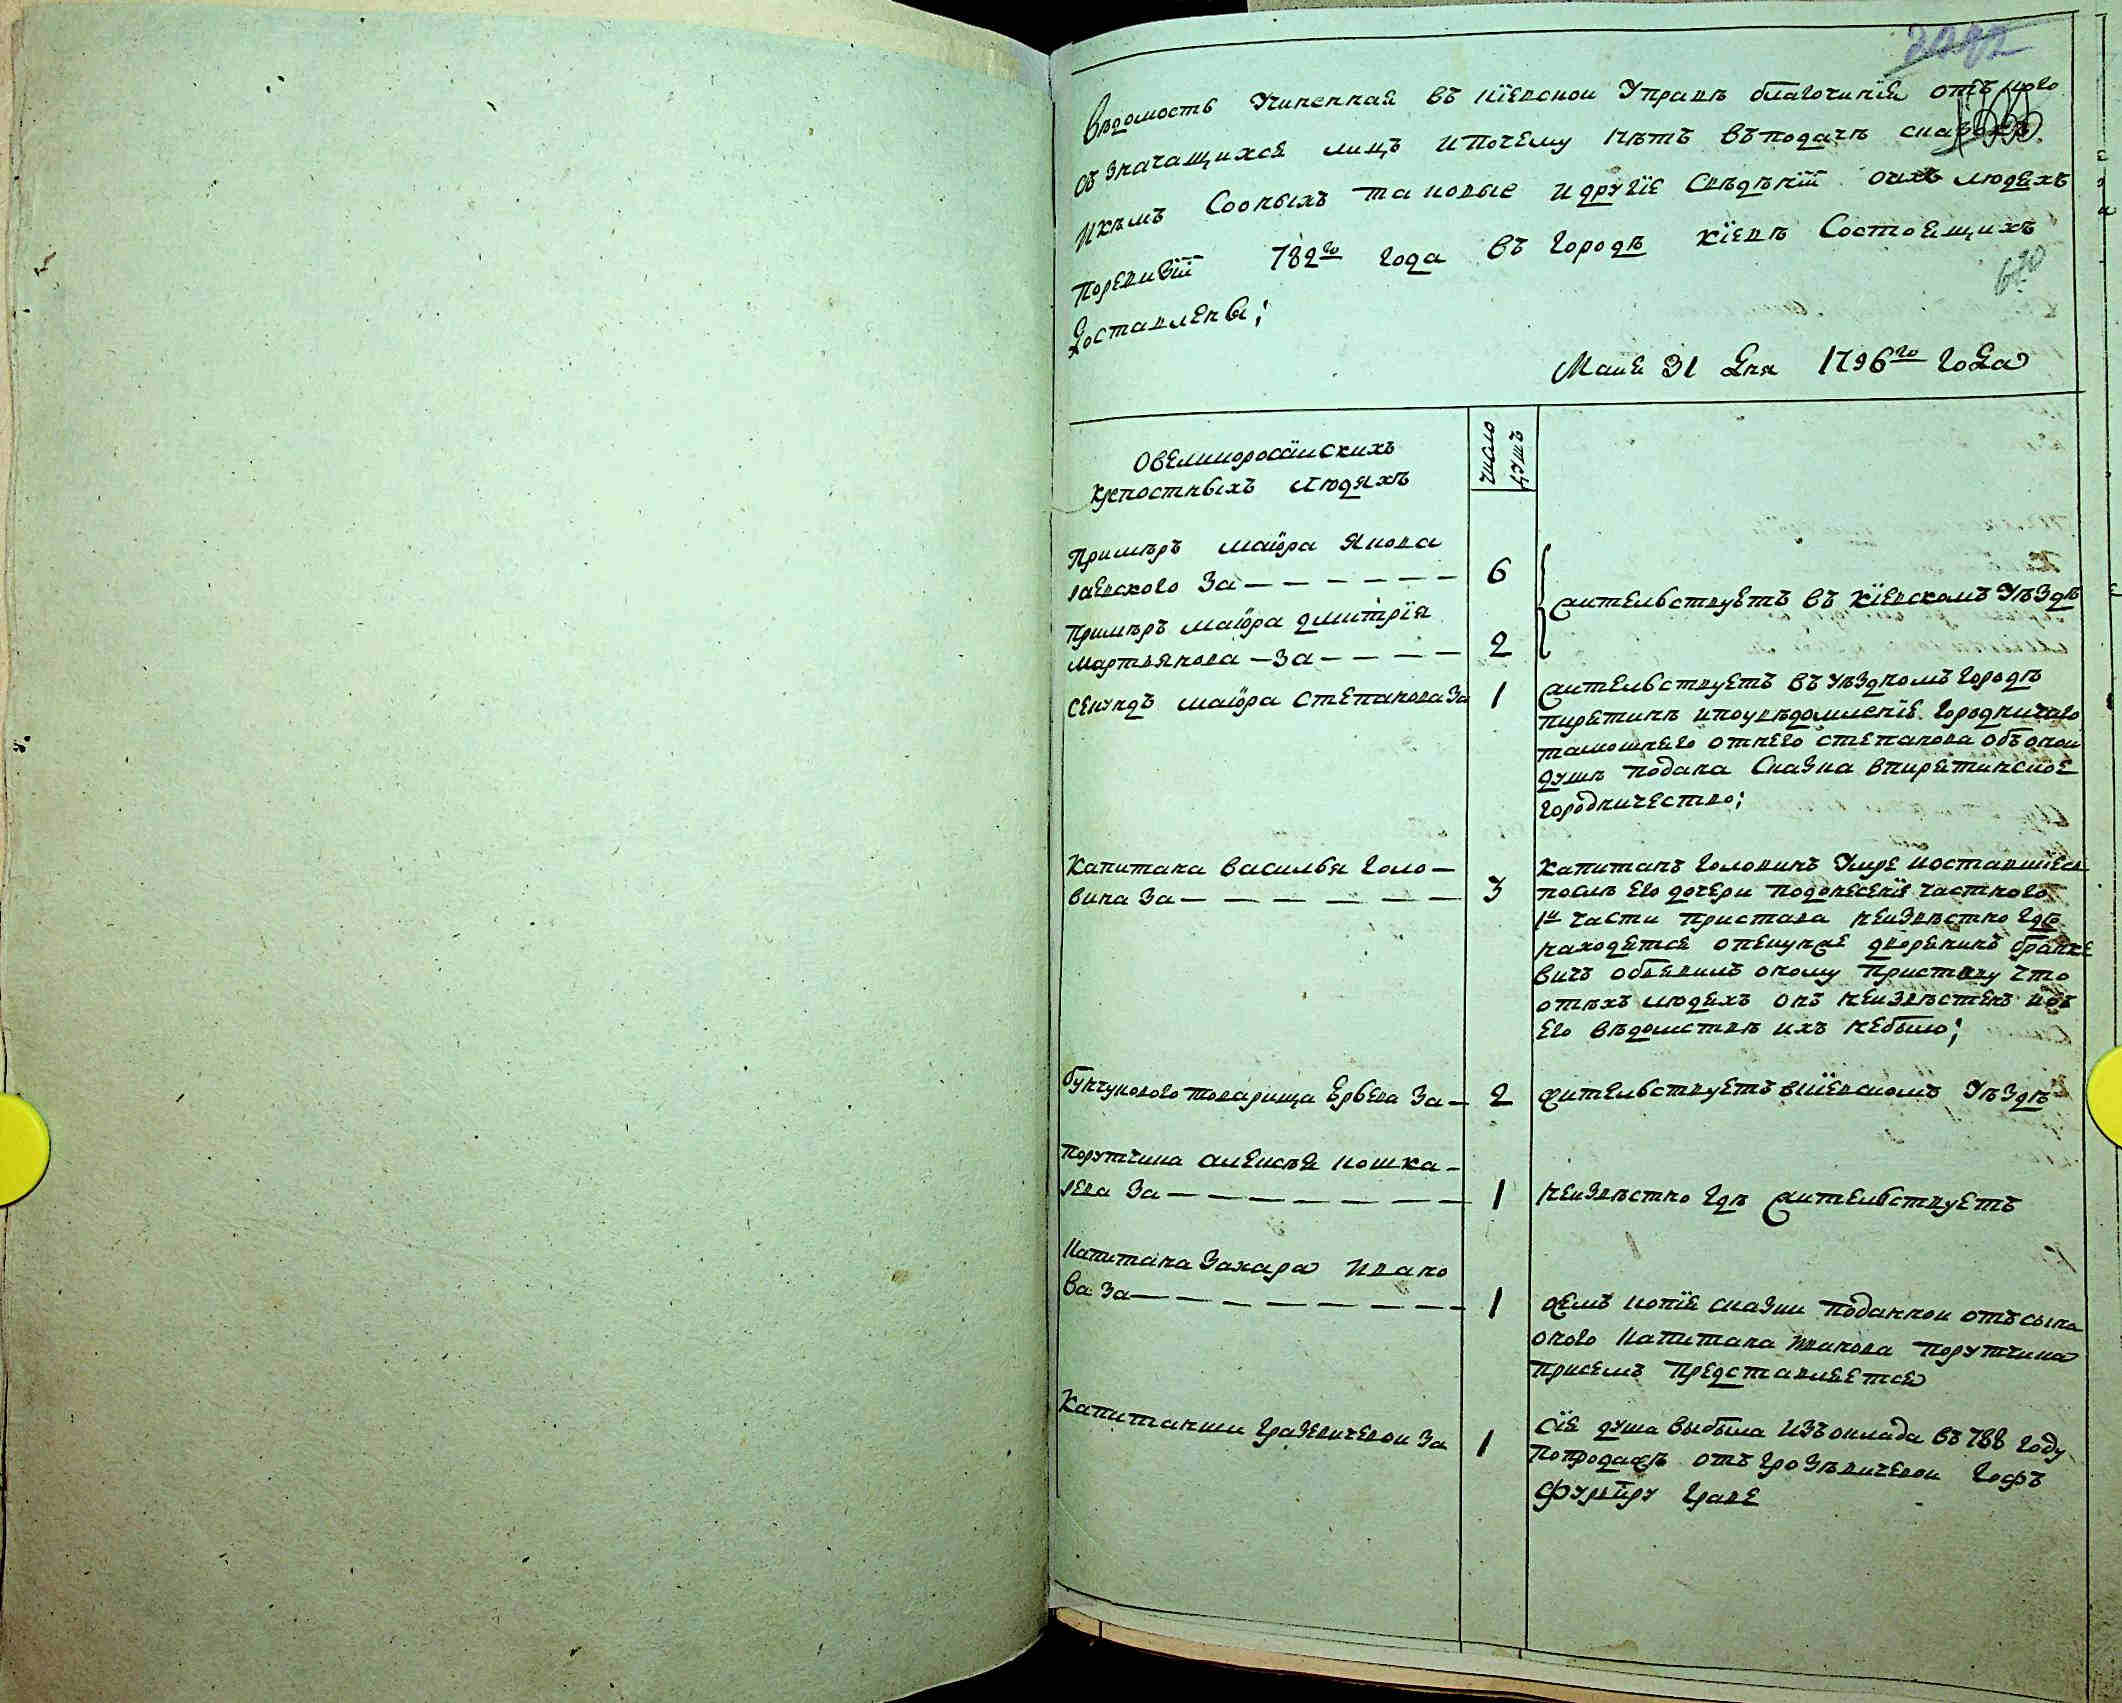 2092
Вѣдомость Учиненная въ Кїевской Управѣ благочинїя отъ кого
1555
съ значащихся лицъ и почему нѣтъ въ подачѣ сказокъ
и кѣмъ с оныхъ таковые и другїе свѣдѣнїи о ихъ людехъ
по ревизїи 782го года въ городѣ Кїевѣ Состоящихъ
620
Доставлены;
Маия 31 Дня 1796го года
О великоросїискихъ
крепостныхъ людяхъ
число
душъ
Примѣръ маїора Янова
раевского За 6
Примѣръ маїора Дмитрїя
Мартьянова — За 2
жительствуетъ въ Кїевскомъ Уѣздѣ
Секундъ маїора Степанова За 1
жительствуетъ въ уѣздномъ городѣ
пирятинѣ и по увѣдомленїю городничаго
тамошнего от него Степанова об оной
душѣ подана Сказка в пирятинское
городничество;
Капитана Василья Голо-
вина За 3
Капитанъ Головинъ Умре и оставшїеся
послѣ его дочери по донесенїю частного
1й части пристава неизвѣстно где
находятся опекунже дворенинъ
вичъ объявилъ оному приставу что
о тѣхъ людехъ онъ неизвѣстенъ и въ
его вѣдомствѣ ихъ небыло;
бунчукового товарища За 2
жительствуетъ в Кїевскомъ Уѣздѣ
Порутчика Алексѣя Кошка-
рева За 1
неизвѣстно гдѣ жительствуетъ
Капитана Захара Ивано
ва За 1
копїя сказки поданной отъ сына
оного капитана Иванова порутчика
присемъ представляется
Капитанши Гразевичевой За 1
сїя душа выбыла изъ оклада въ 788 году
по продажѣ отъ Грозѣвичевой Гофъ
Фурїеру Граве